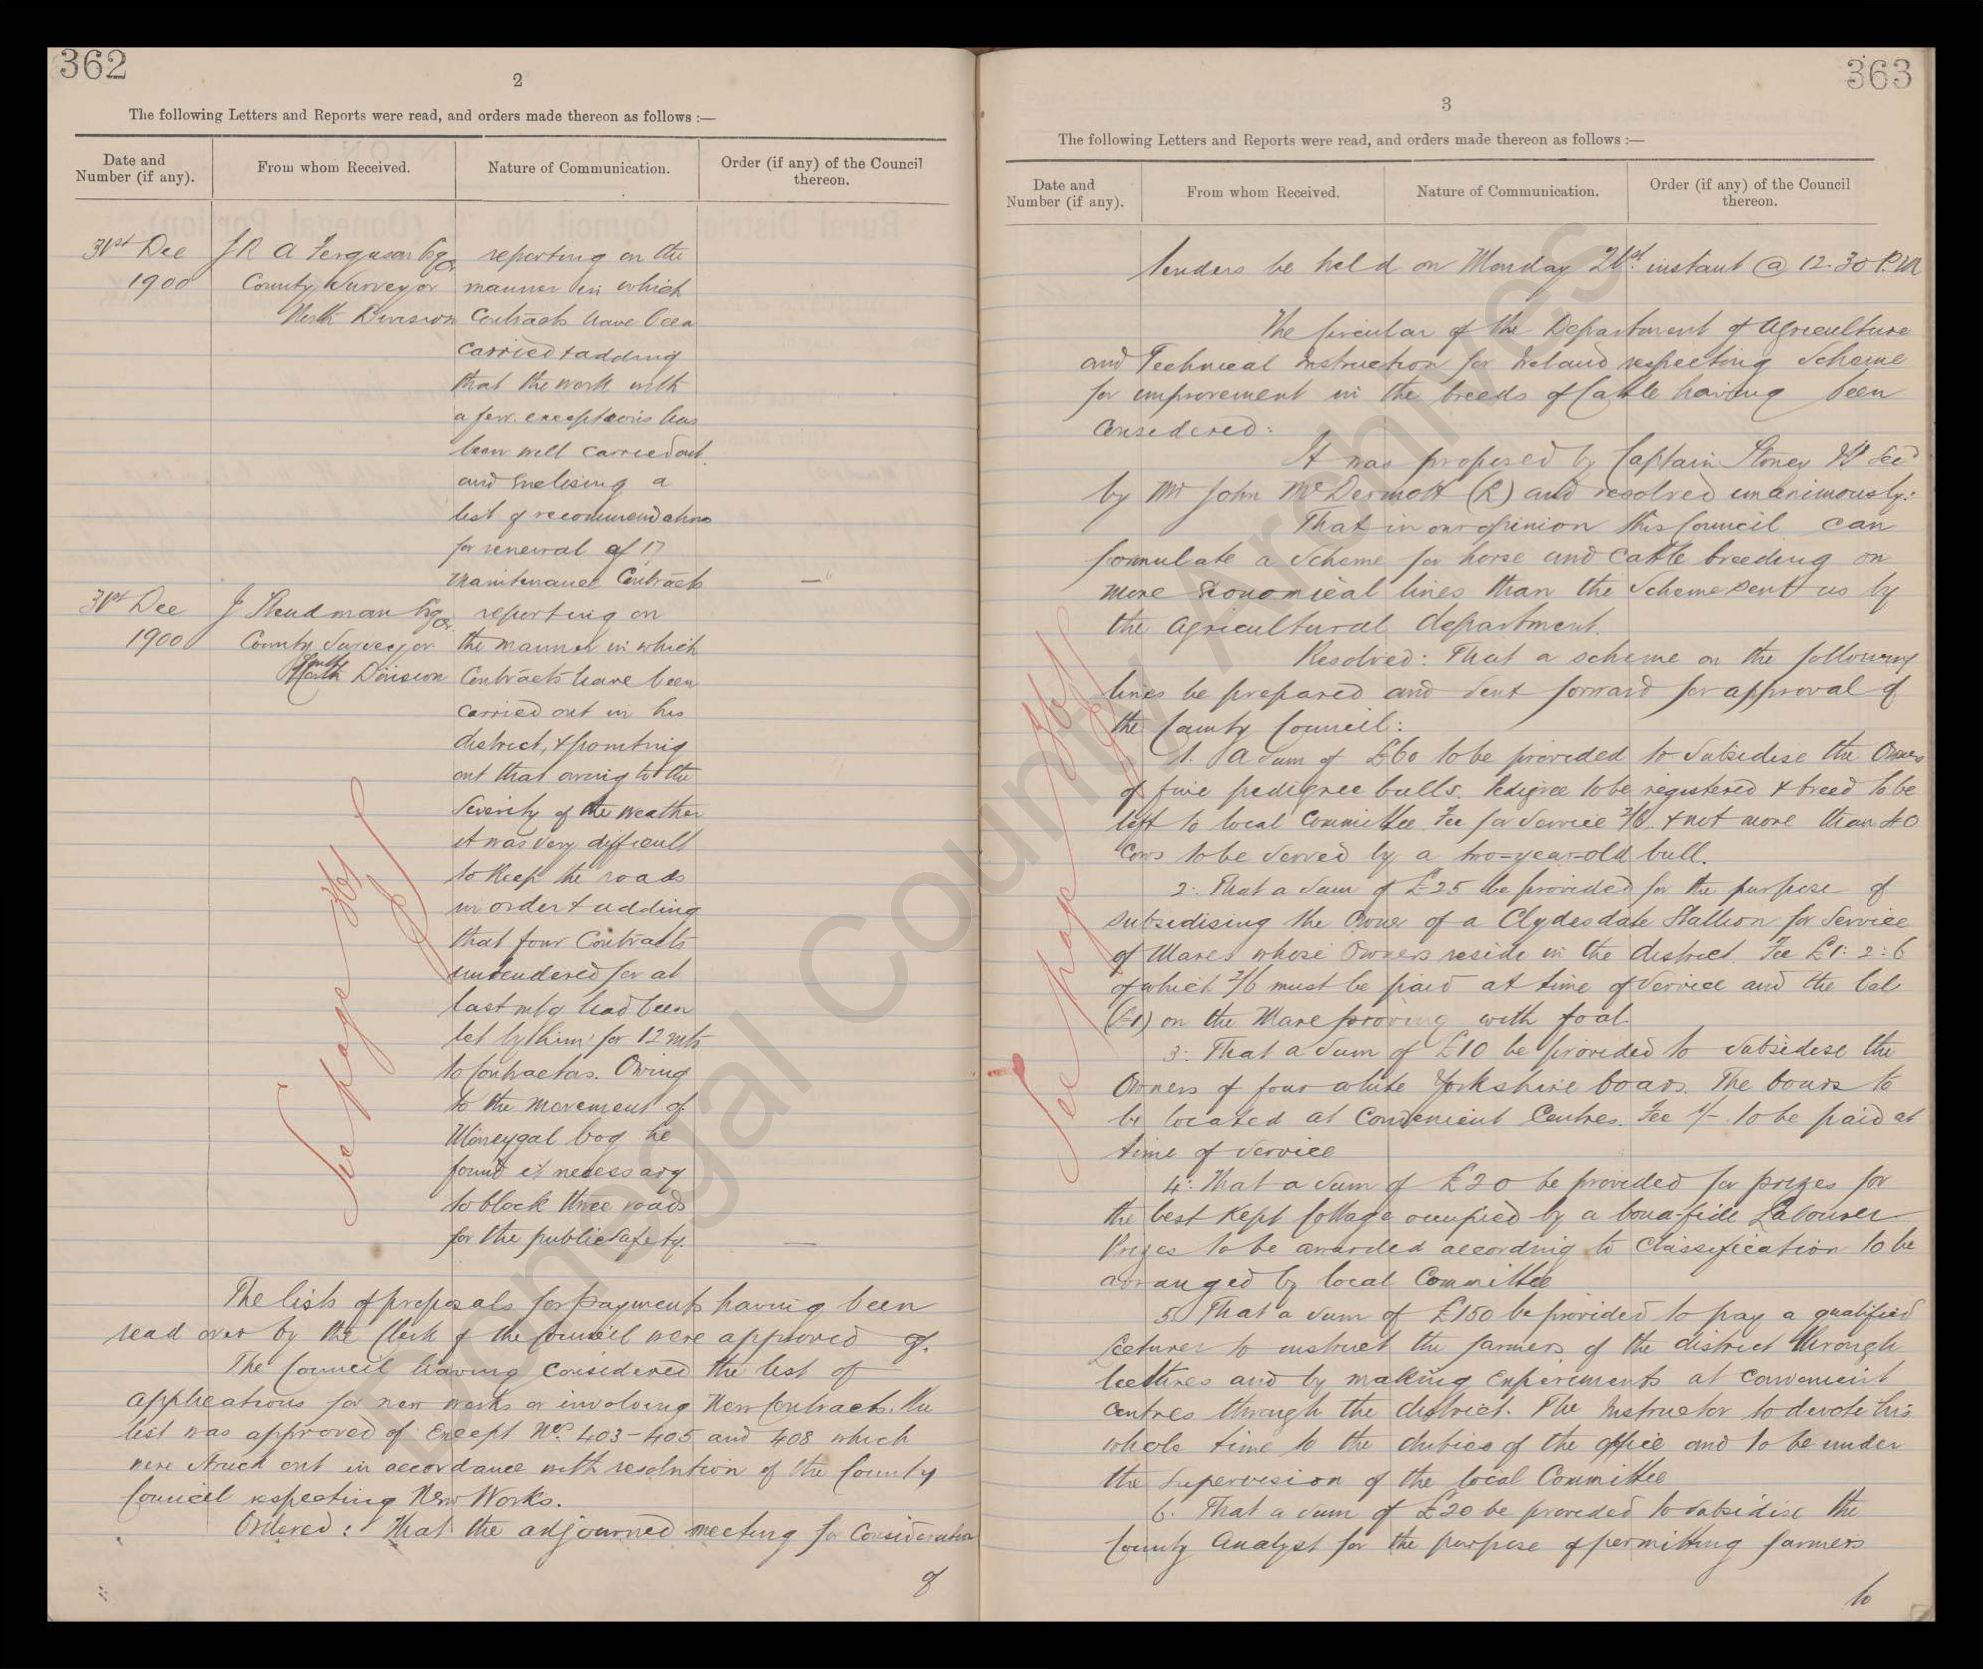 362
2
The following Letters and Reports were read, and orders made thereon as follows :—
Date and Number (if any).
From whom Received.
Nature of Communication.
Order (if any) of the Council thereon.
31st Dec
1900
J R A Ferguson Esqr
County Surveyor
North Division
reporting on the
manner in which
Contracts have been
carried & adding
that the work with
a few exceptions has
been well carried out
and enclosing a
list of recommendations
for renewal of 17
Maintenance Contracts
—
31st Dec
1900
J Steadman Esqr
County Surveyor
South Division
reporting on
the manner in which
Contracts have been
carried out in his
district, & pointing
out that owing to the
Severity of the weather
it was very difficult
to keep the roads
in order & adding
that four Contracts
untendered for at
last mtg had been
let by him for 12 mts
to Contractors. Owing
to the movement of
Moneygal bog he
found it necessary
to block three roads
for the public safety.
—
See page 361
The lists of proposals for payments having been
read over by the Clerk of the Council were approved of.
The Council having Considered the list of
applications for new works or involving New Contracts. the
list was approved of Except Nos. 403-405 and 408 which
were struck out in accordance with resolution of the County
Council respecting New Works.
Ordered: That the adjourned meeting for Consideration
of
363
3
The following Letters and Reports were read, and orders made thereon as follows :—
Date and Number (if any).
From whom Received.
Nature of Communication.
Order (if any) of the Council thereon.
tenders be held on Monday 21st. instant @ 12.30 P.M
The Circular of the Department of Agriculture
and Technical Instruction for Ireland respecting Scheme
for improvement in the breeds of Cattle having been
Considered:
It was proposed by Captain Stoney Secd
by Mr John McDermott (R) and resolved unanimously:
That in our opinion this Council can
formulate a Scheme for horse and Cattle breeding on
more Economical lines than the Scheme sent us by
the Agricultural department.
Resolved: That a scheme on the following
lines be prepared and sent forward for approval of
the County Council:
1. A Sum of £60 to be provided to Subsidise the Owners
of five pedigree bulls. Pedigree to be registered & breed to be
left to local Committee Fee for Service 2/6 & not more than 40
Cows to be Served by a two=year=old bull.
2. That a Sum of £25 be provided for the purpose of
subsidising the Owner of a Clydesdale Stallion for Service
of Mares whose Owners reside in the district. Fee £1:2:6
of which 2/6 must be paid at time of Service and the bal
(£1) on the Mare proving with foal.
3. That a Sum of £10 be provided to Subsidise the
Owners of four white Yorkshire boars. The boars to
be located at Convenient Centres. Fee 1/- to be paid at
time of Service
4. That a Sum of £20 be provided for prizes for
the best kept Cottage occupied by a bona-fide Labourer
Prizes to be awarded according to Classification to be
arranged by local Committee
5. That a Sum of £150 be provided to pay a qualified
Lecturer to instruct the farmers of the district through
lectures and by making Experiments at Convenient
Centres through the district. The Instructor to devote his
whole time to the duties of the office and to be under
the Supervision of the local Committee
6. That a Sum of £20 be provided to subsidise the
County Analyst for the purpose of permitting farmers
to
See page 361
Donegal County Archives